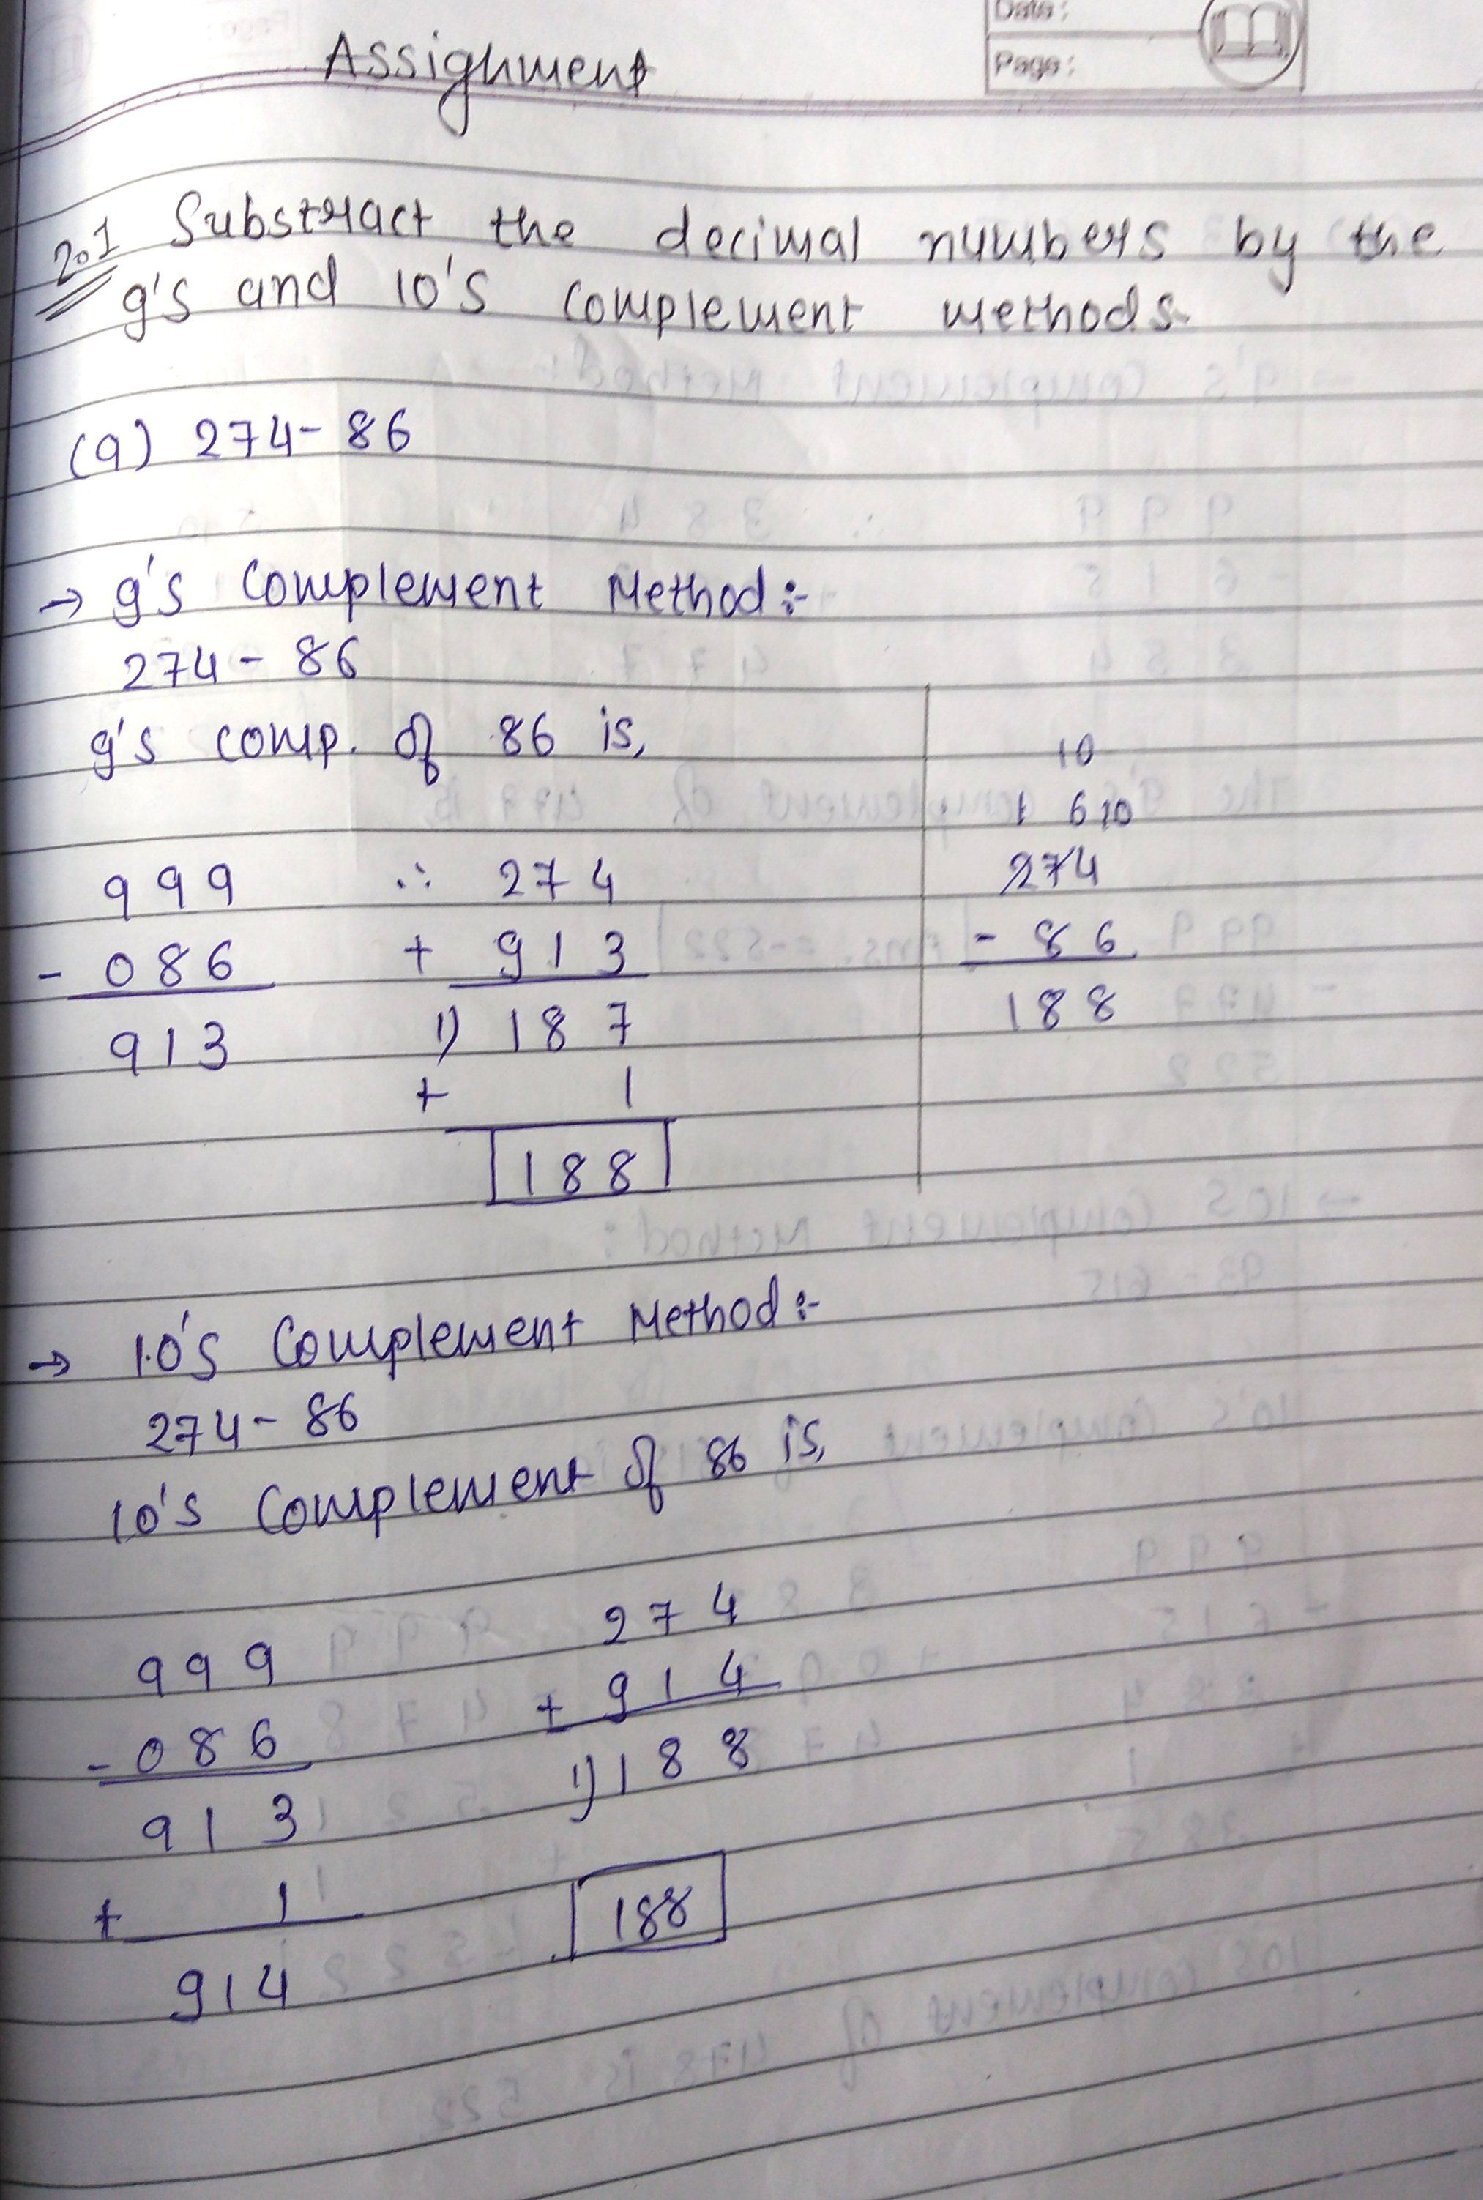 Date:
Page:
Assignment
2.1 Substract the decimal numbers by the
9's and 10's complement methods.
(a) 274-86
→ 9's Complement Method:-
274-86
9's comp. of 86 is,
999
- 086
913
∴ 274
+ 913
1) 187
+ 1
188
10
1 6 10
274
- 86
188
→ 10's Complement Method:-
274-86
10's Complement of 86 is,
999
- 086
913
+ 1
914
274
+ 914
1) 188
188